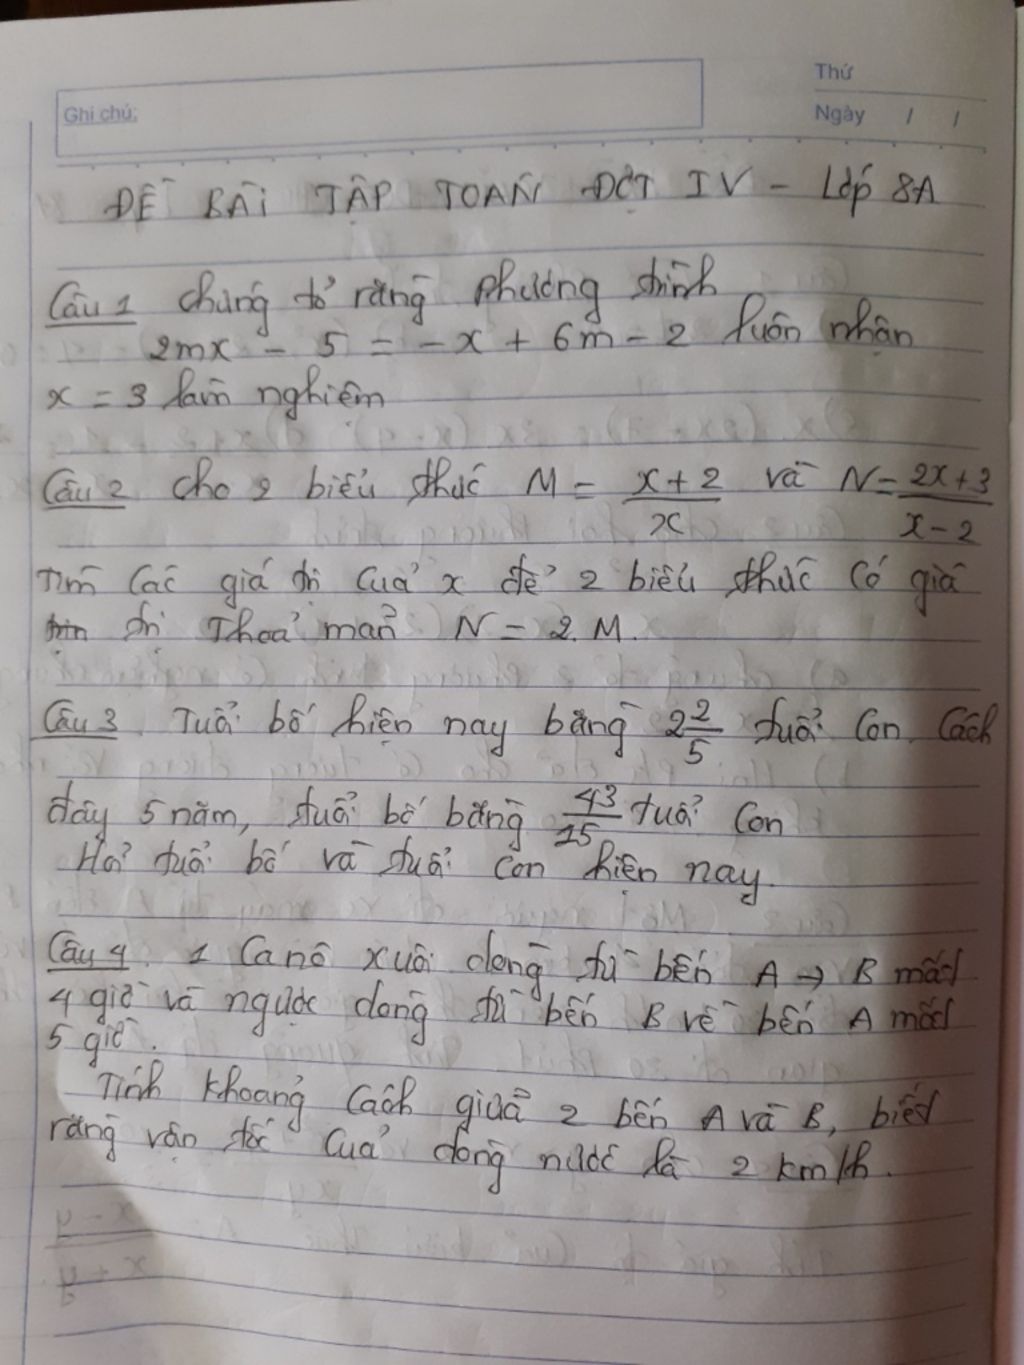 Ghi chú:
Thứ
Ngày / /
ĐỀ BÀI TẬP TOÁN ĐỢT IV - Lớp 8A
Câu 1 chứng tỏ rằng phương trình
2mx - 5 = -x + 6m - 2 luôn nhận
x = 3 làm nghiệm
Câu 2 cho 2 biểu thức M = \frac{x+2}{x} và N = \frac{2x+3}{x-2}
Tìm các giá trị của x để 2 biểu thức có giá
trị Thoả mãn N = 2.M.
Câu 3. Tuổi bố hiện nay bằng 2\frac{2}{5} tuổi con. Cách
đây 5 năm, tuổi bố bằng \frac{43}{15} tuổi con
Hỏi tuổi bố và tuổi con hiện nay.
Câu 4. 1 Ca nô xuôi dòng từ bến A → B mất
4 giờ và ngược dòng từ bến B về bến A mất
5 giờ.
Tính khoảng cách giữa 2 bến A và B, biết
rằng vận tốc của dòng nước là 2 km/h.